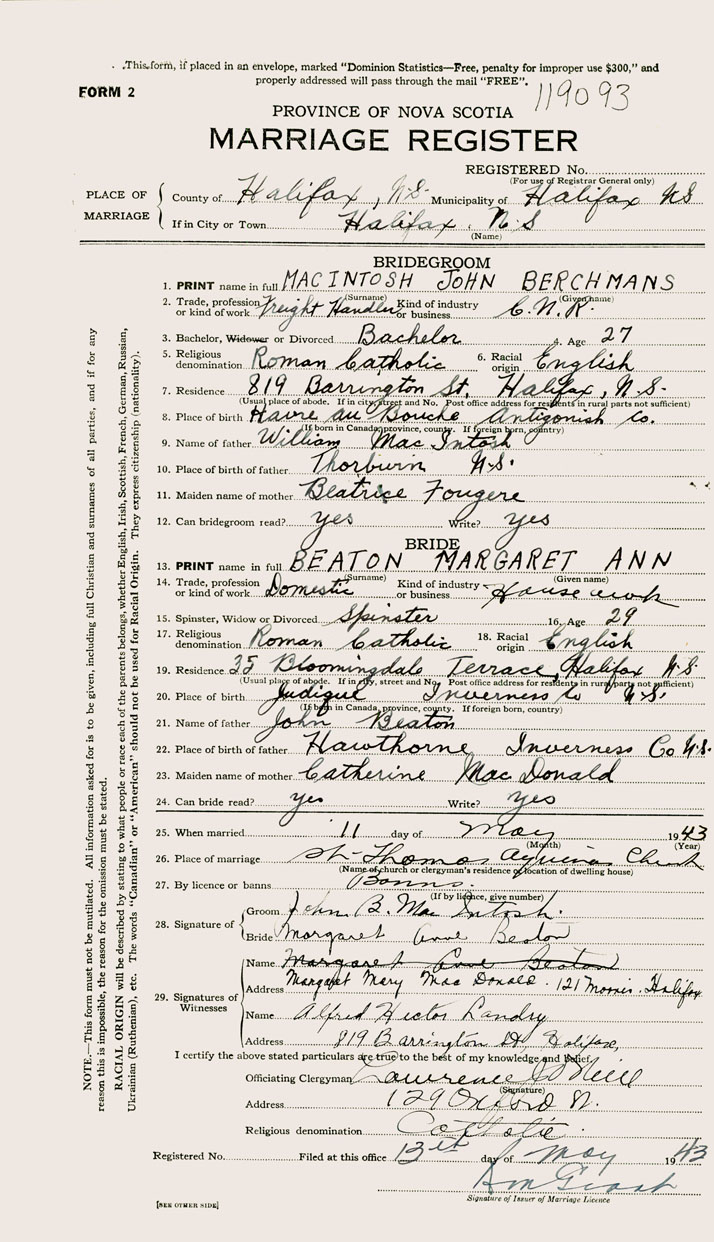 .This form, if placed in an envelope, marked "Dominion Statistics—Free, penalty for improper use $300," and
properly addressed will pass through the mail "FREE".
FORM 2
119093
PROVINCE OF NOVA SCOTIA
MARRIAGE REGISTER
REGISTERED No.
(For use of Registrar General only)
PLACE OF MARRIAGE
County of Halifax, N.S. Municipality of Halifax NS
If in City or Town Halifax. N.S
(Name)
BRIDEGROOM
1. PRINT name in full MACINTOSH JOHN BERCHMANS
(Surname) (Given name)
2. Trade, profession or kind of work Freight Handler Kind of industry or business C.N.R.
3. Bachelor, Widower or Divorced Bachelor 4. Age 27
5. Religious denomination Roman Catholic 6. Racial origin English
7. Residence 819 Barrington St, Halifax, N.S.
(Usual place of abode. If in city, street and No. Post office address for residents in rural parts not sufficient)
8. Place of birth Havre au Bouche Antigonish Co.
(If born in Canada, province, county. If foreign born, country)
9. Name of father William MacIntosh
10. Place of birth of father Thorburn N.S.
11. Maiden name of mother Beatrice Fougere
12. Can bridegroom read? yes Write? yes
BRIDE
13. PRINT name in full BEATON MARGARET ANN
(Surname) (Given name)
14. Trade, profession or kind of work Domestic Kind of industry or business House work
15. Spinster, Widow or Divorced Spinster 16. Age 29
17. Religious denomination Roman Catholic 18. Racial origin English
19. Residence 35 Bloomingdale Terrace, Halifax N.S.
(Usual place of abode. If in city, street and No. Post office address for residents in rural parts not sufficient)
20. Place of birth Judique Inverness Co N.S.
(If born in Canada, province, county. If foreign born, country)
21. Name of father John Beaton
22. Place of birth of father Hawthorne Inverness Co N.S.
23. Maiden name of mother Catherine MacDonald
24. Can bride read? yes Write? yes
25. When married 11 day of May 1943
(Month) (Year)
26. Place of marriage St. Thomas Aquinas Church
(Name of church or clergyman's residence or location of dwelling house)
27. By licence or banns Banns.
(If by licence, give number)
28. Signature of
Groom John B. MacIntosh.
Bride Margaret Anne Beaton
29. Signatures of Witnesses
Name Margaret Anne Beaton
Address Margaret Mary MacDonald. 121 Morris. Halifax
Name Alfred Hector Landry
Address 819 Barrington St, Halifax,
I certify the above stated particulars are true to the best of my knowledge and belief.
Officiating Clergyman Lawrence J O'Neill
(Signature)
Address 129 Oxford St.
Religious denomination Catholic.
Registered No. Filed at this office 13th day of May 1943
Signature of Issuer of Marriage Licence
[SEE OTHER SIDE]
NOTE.—This form must not be mutilated. All information asked for is to be given, including full Christian and surnames of all parties, and if for any
reason this is impossible, the reason for the omission must be stated.
RACIAL ORIGIN will be described by stating to what people or race each of the parents belongs, whether English, Irish, Scottish, French, German, Russian,
Ukrainian (Ruthenian), etc. The words "Canadian" or "American" should not be used for Racial Origin. They express citizenship (nationality).